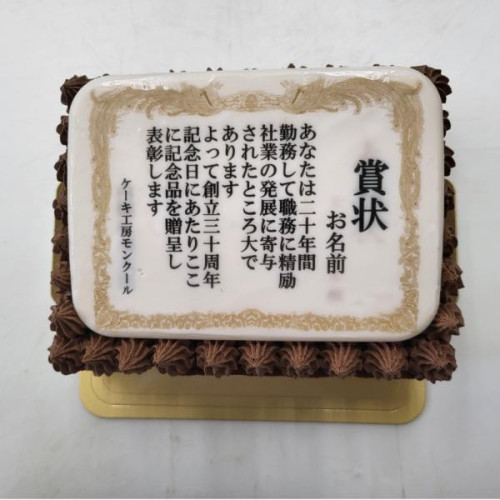 賞状
お名前
あなたは二十年間
勤務して職務に精励
社業の発展に寄与
されたところ大で
あります
よって創立三十周年
記念日にあたりここ
に記念品を贈呈し
表彰します
ケーキ工房モンクール